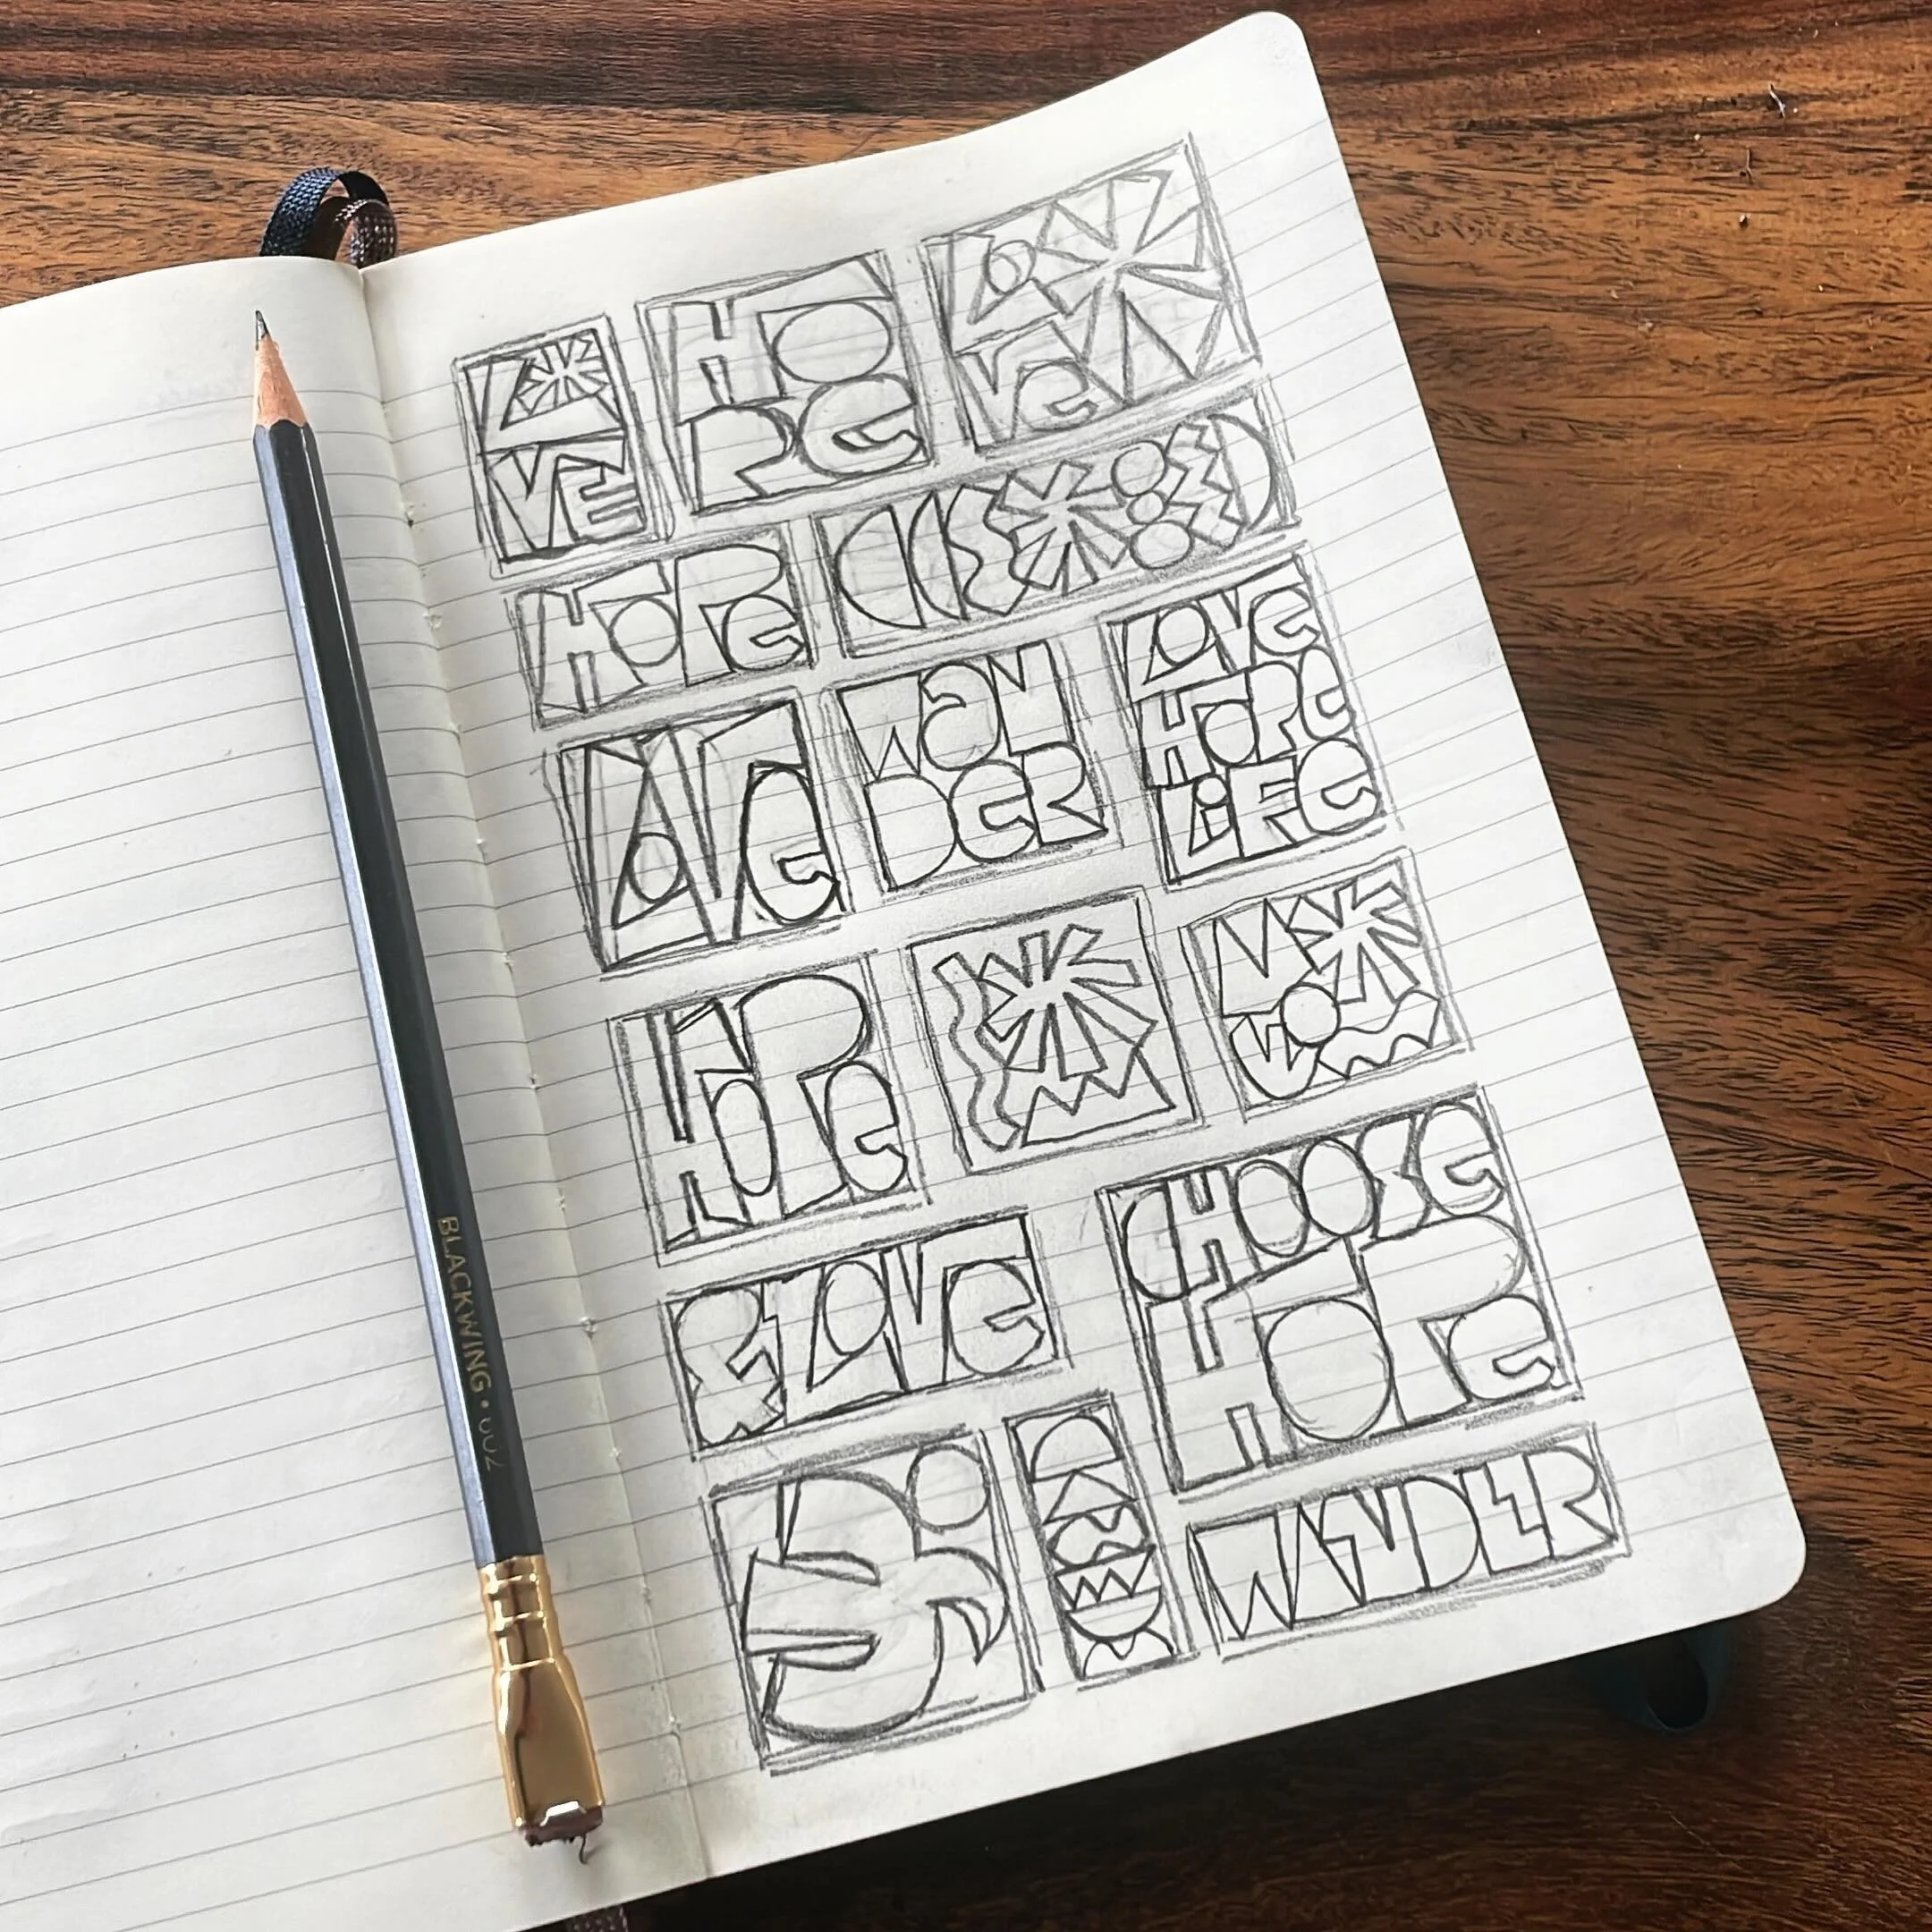 L
VE
HO
PE
LO
VE
HOPE
LOVE
WaN
DER
LOVE
HOPE
LiFE
HOPE
& LOVE
CHOOSE
HOPE
WANDER
BLACKWING • 602